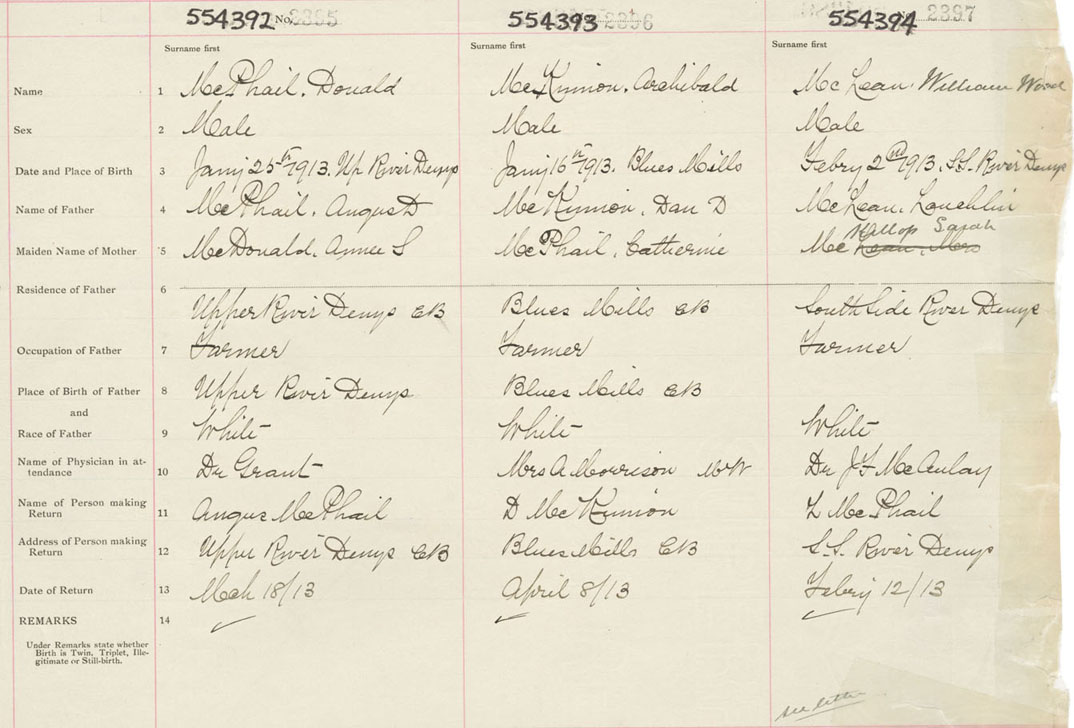 554392 No. 2395 554393 2396 554394 No. 2397
Surname first Surname first Surname first
Name 1 McPhail, Donald McKinnon, Archibald McLean, William Wood
Sex 2 Male Male Male
Date and Place of Birth 3 Jany 25th 1913. Up River Denys Jany 16th 1913. Blues Mills Febry 2nd 1913. S.S. River Denys
Name of Father 4 McPhail, Angus D McKinnon, Dan D McLean, Lauchlin
Maiden Name of Mother 5 McDonald, Annie S McPhail, Catherine Mc Lean, Mrs Sarah
Residence of Father 6
Upper River Denys CB Blues Mills CB South Side River Denys
Occupation of Father 7 Farmer Farmer Farmer
Place of Birth of Father 8 Upper River Denys Blues Mills CB
and
Race of Father 9 White White White
Name of Physician in at-
tendance 10 Dr Grant Mrs A Morrison MW Dr J F McAulay
Name of Person making
Return 11 Angus McPhail D McKinnon L McPhail
Address of Person making
Return 12 Upper River Denys CB Blues Mills CB S.S. River Denys
Date of Return 13 Mch 18/13 April 8/13 Febry 12/13
REMARKS 14
Under Remarks state whether
Birth is Twin, Triplet, Ille-
gitimate or Still-birth.
see letter